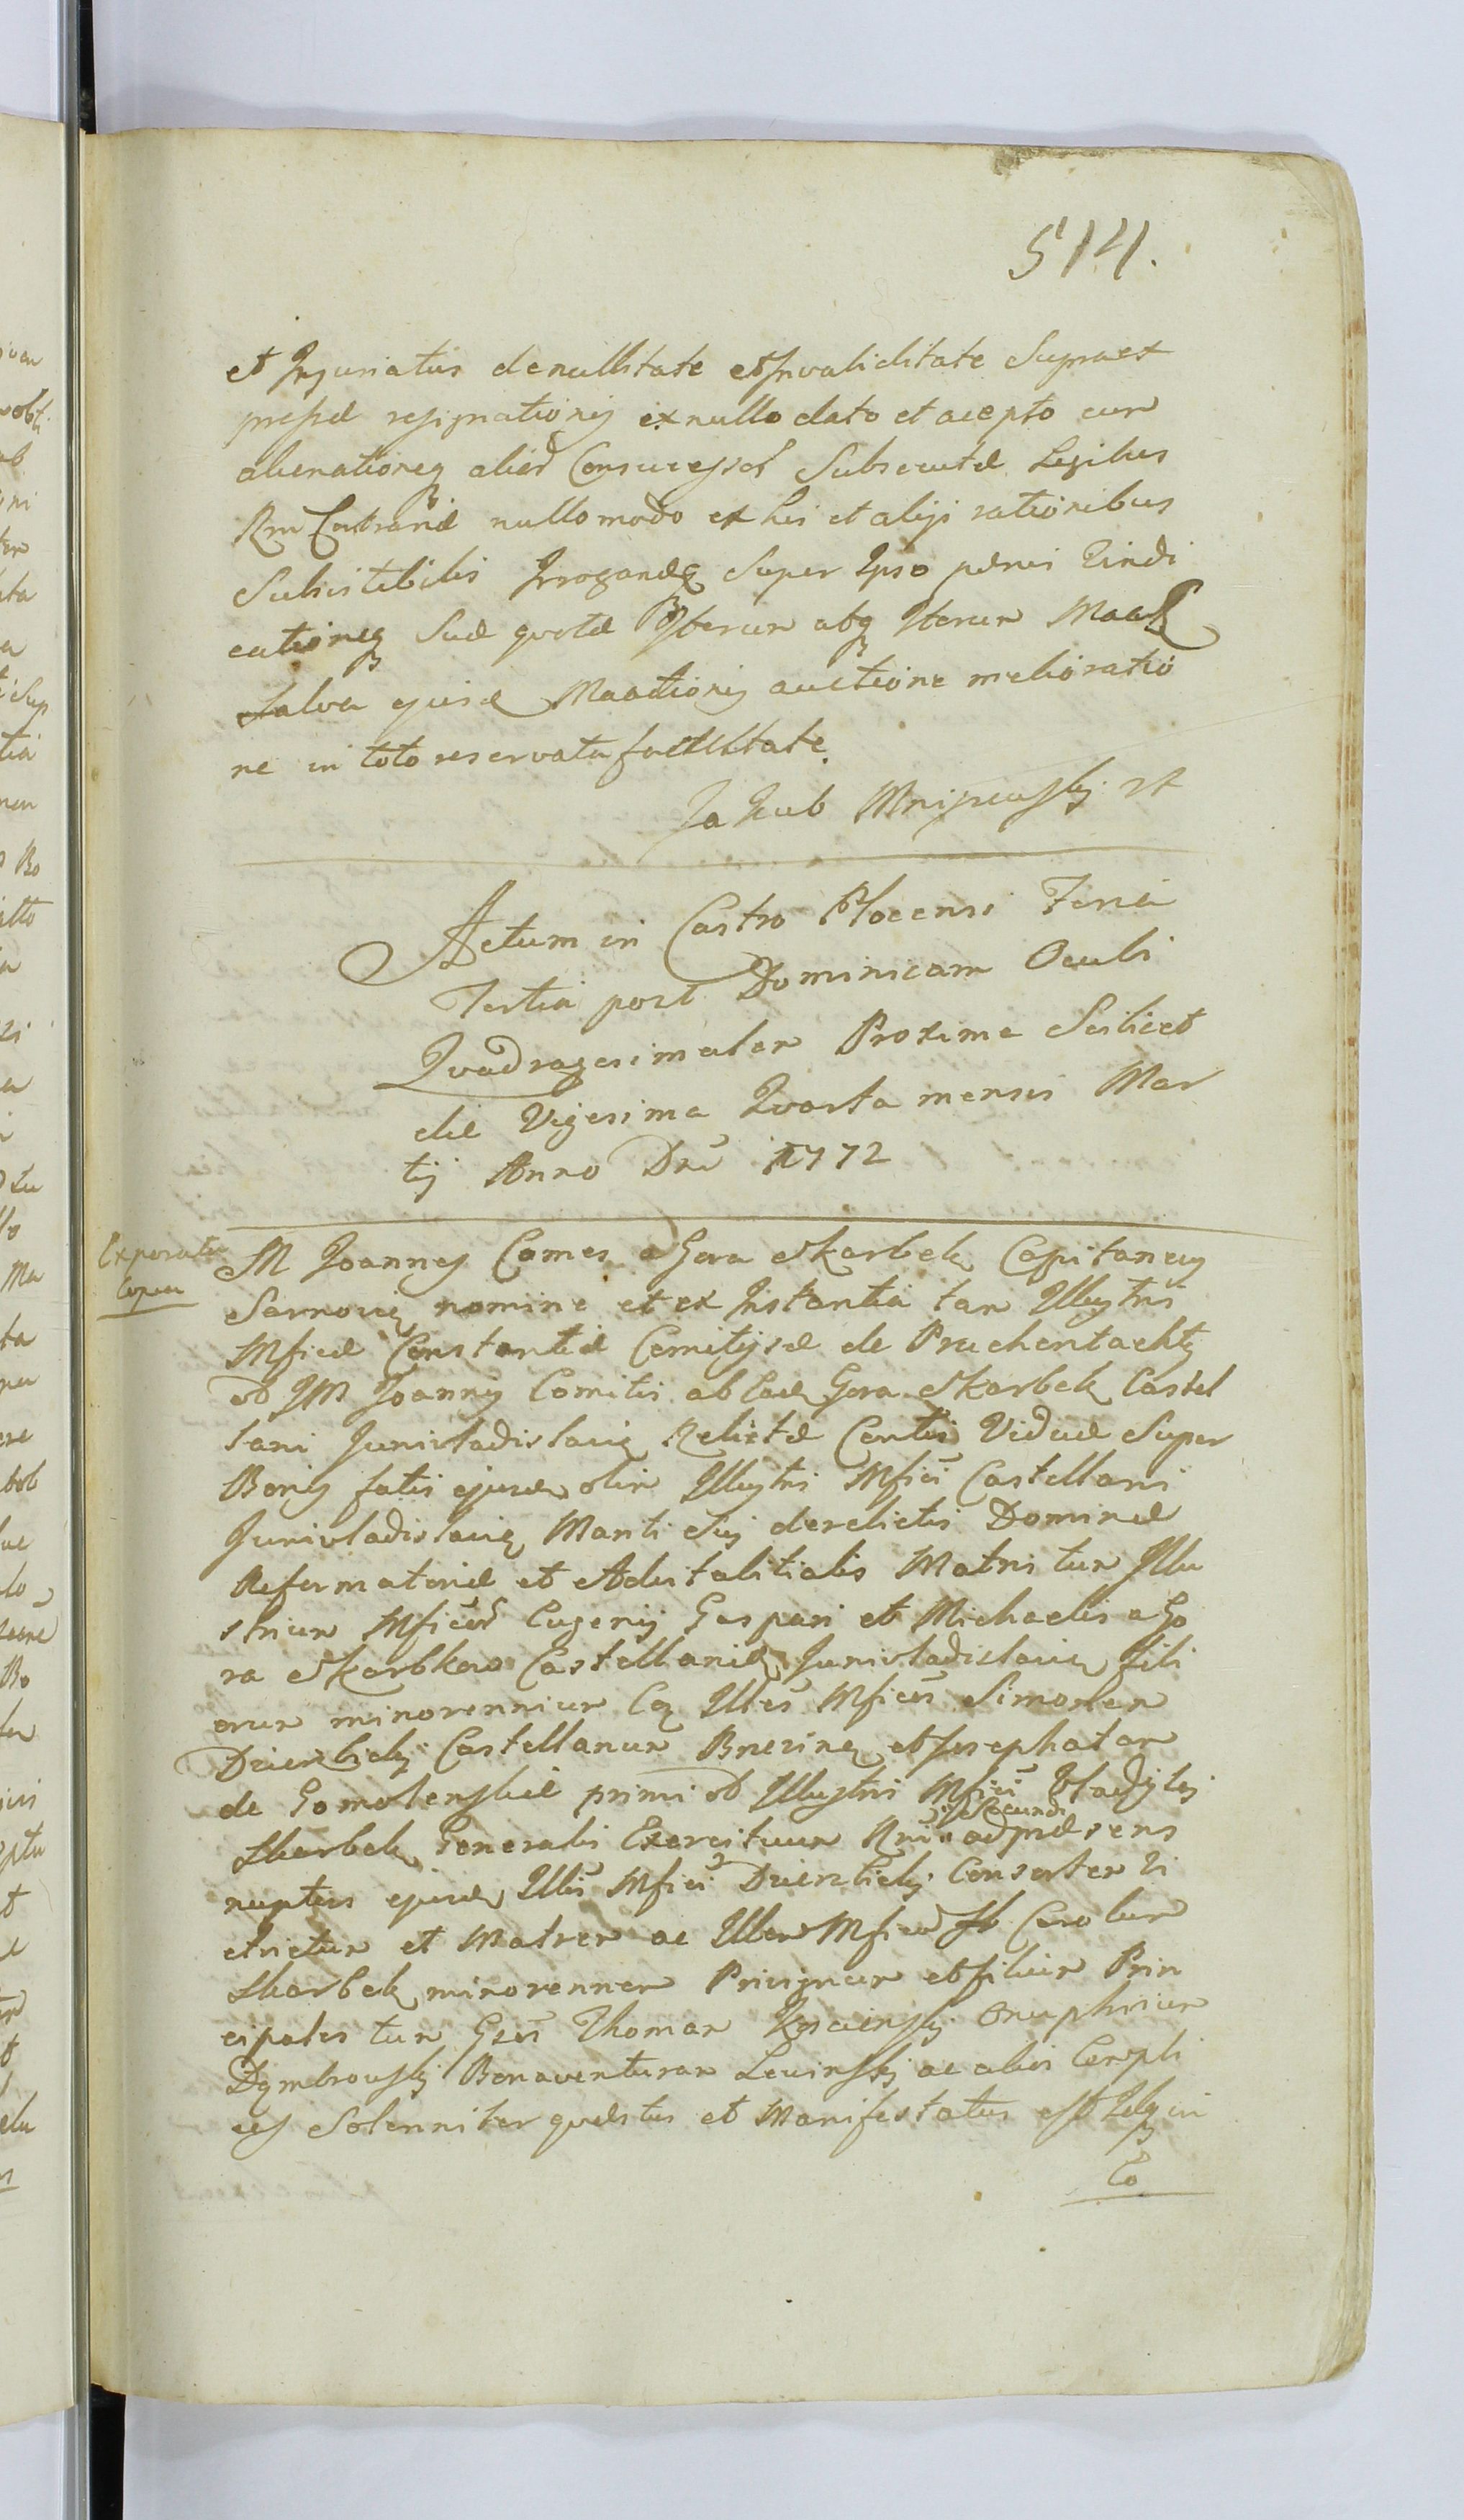 514.
et Injuriatus de nullitate et Invaliditate Supraex
pressæ resignationis ex nullo dato et acepto cum
alienationeq aliar Consucessor Subsecutæ Legibus
Rni Contrariæ nullo modo ex his et alijs rationibus
Subsistibilis Irrogandæ Super Ipso pænis Vindi
cationeq Suæ quotæ Iterum atq Iterum
Salva ejusd Maõtionis auctione melioratio
ne in toto reservata facultate.
Jakub
Actum in Castro Plocensi Feria
Tertia post Dominicam Oculi
Quadragesimalem Proxima Scilicet
die Vigesima Quarta mensis Mar
tij Anno Dni 1772
Exporata
Copia
M Joannes Comes a Gora Skarbek Capitaneus
Sarnovien nomine et ex Instantia tam Illustris
Mficæ Constantiæ Comitissæ de
od JM Joannis Comitis ab ead Gora Skarbek Castel
lani Junivladislavien Relictæ Contis Viduæ Super
Bonis fatis ejusdem olim Illustris Mfici Castellani
Junivladislavien Mariti Sui derelictis Dominæ
Reformatoriæ et Advitalitialis Matris tum Illu
strium Mficor Eugenij Gaspari et Michaelis a Go
ra Skarbkow Castellanid Junivladislavien fili
orum minorennium Coq Illes Mficos Simonem
Dzierzbicky Castellanum Brezinen et Josephatam
de Gomolenskie primi od Illustris Mfici Vladyslaj
Skarbek Generalis Exercituum Rni " Secundi " ad præsens
nuptus ejusdem Illis Mfici Dzierzbicky Consortem Vi
ctricem et Matrem ac Illem Mficum Carolum
Skarbek minorennem Privignum et filium Prin
cipales tum Gsos Thomam Onuphrium
Dymbrowsky Bonaventuram Lewinsky ac alios Compli
ces Solenniter quæstus et Manifestatus est Idq in
Eo